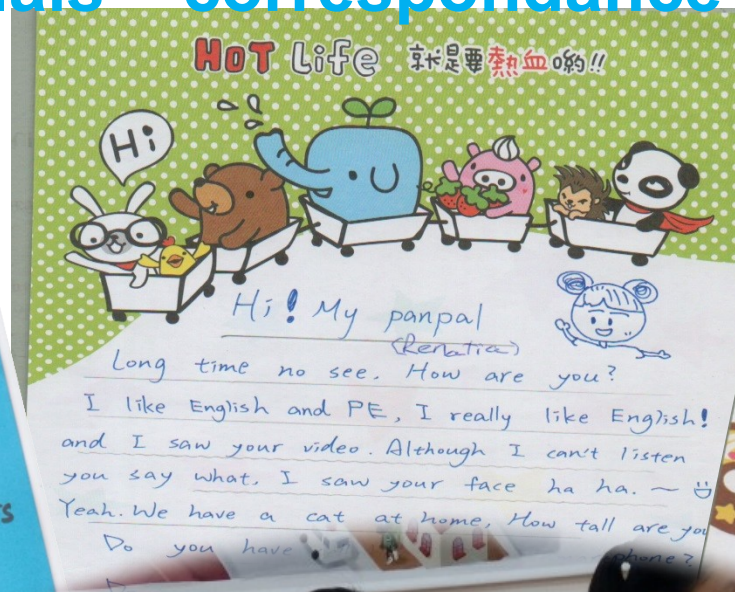 correspondance
HOT Life 就是要熱血喲!!
Hi
Hi! My panpal
Long time no see. How are you?
I like English and PE, I really like English!
and I saw your video. Although I can't listen
you say what, I saw your face ha ha. ~
Yeah. We have a cat at home, How tall are you
Do you have phone?